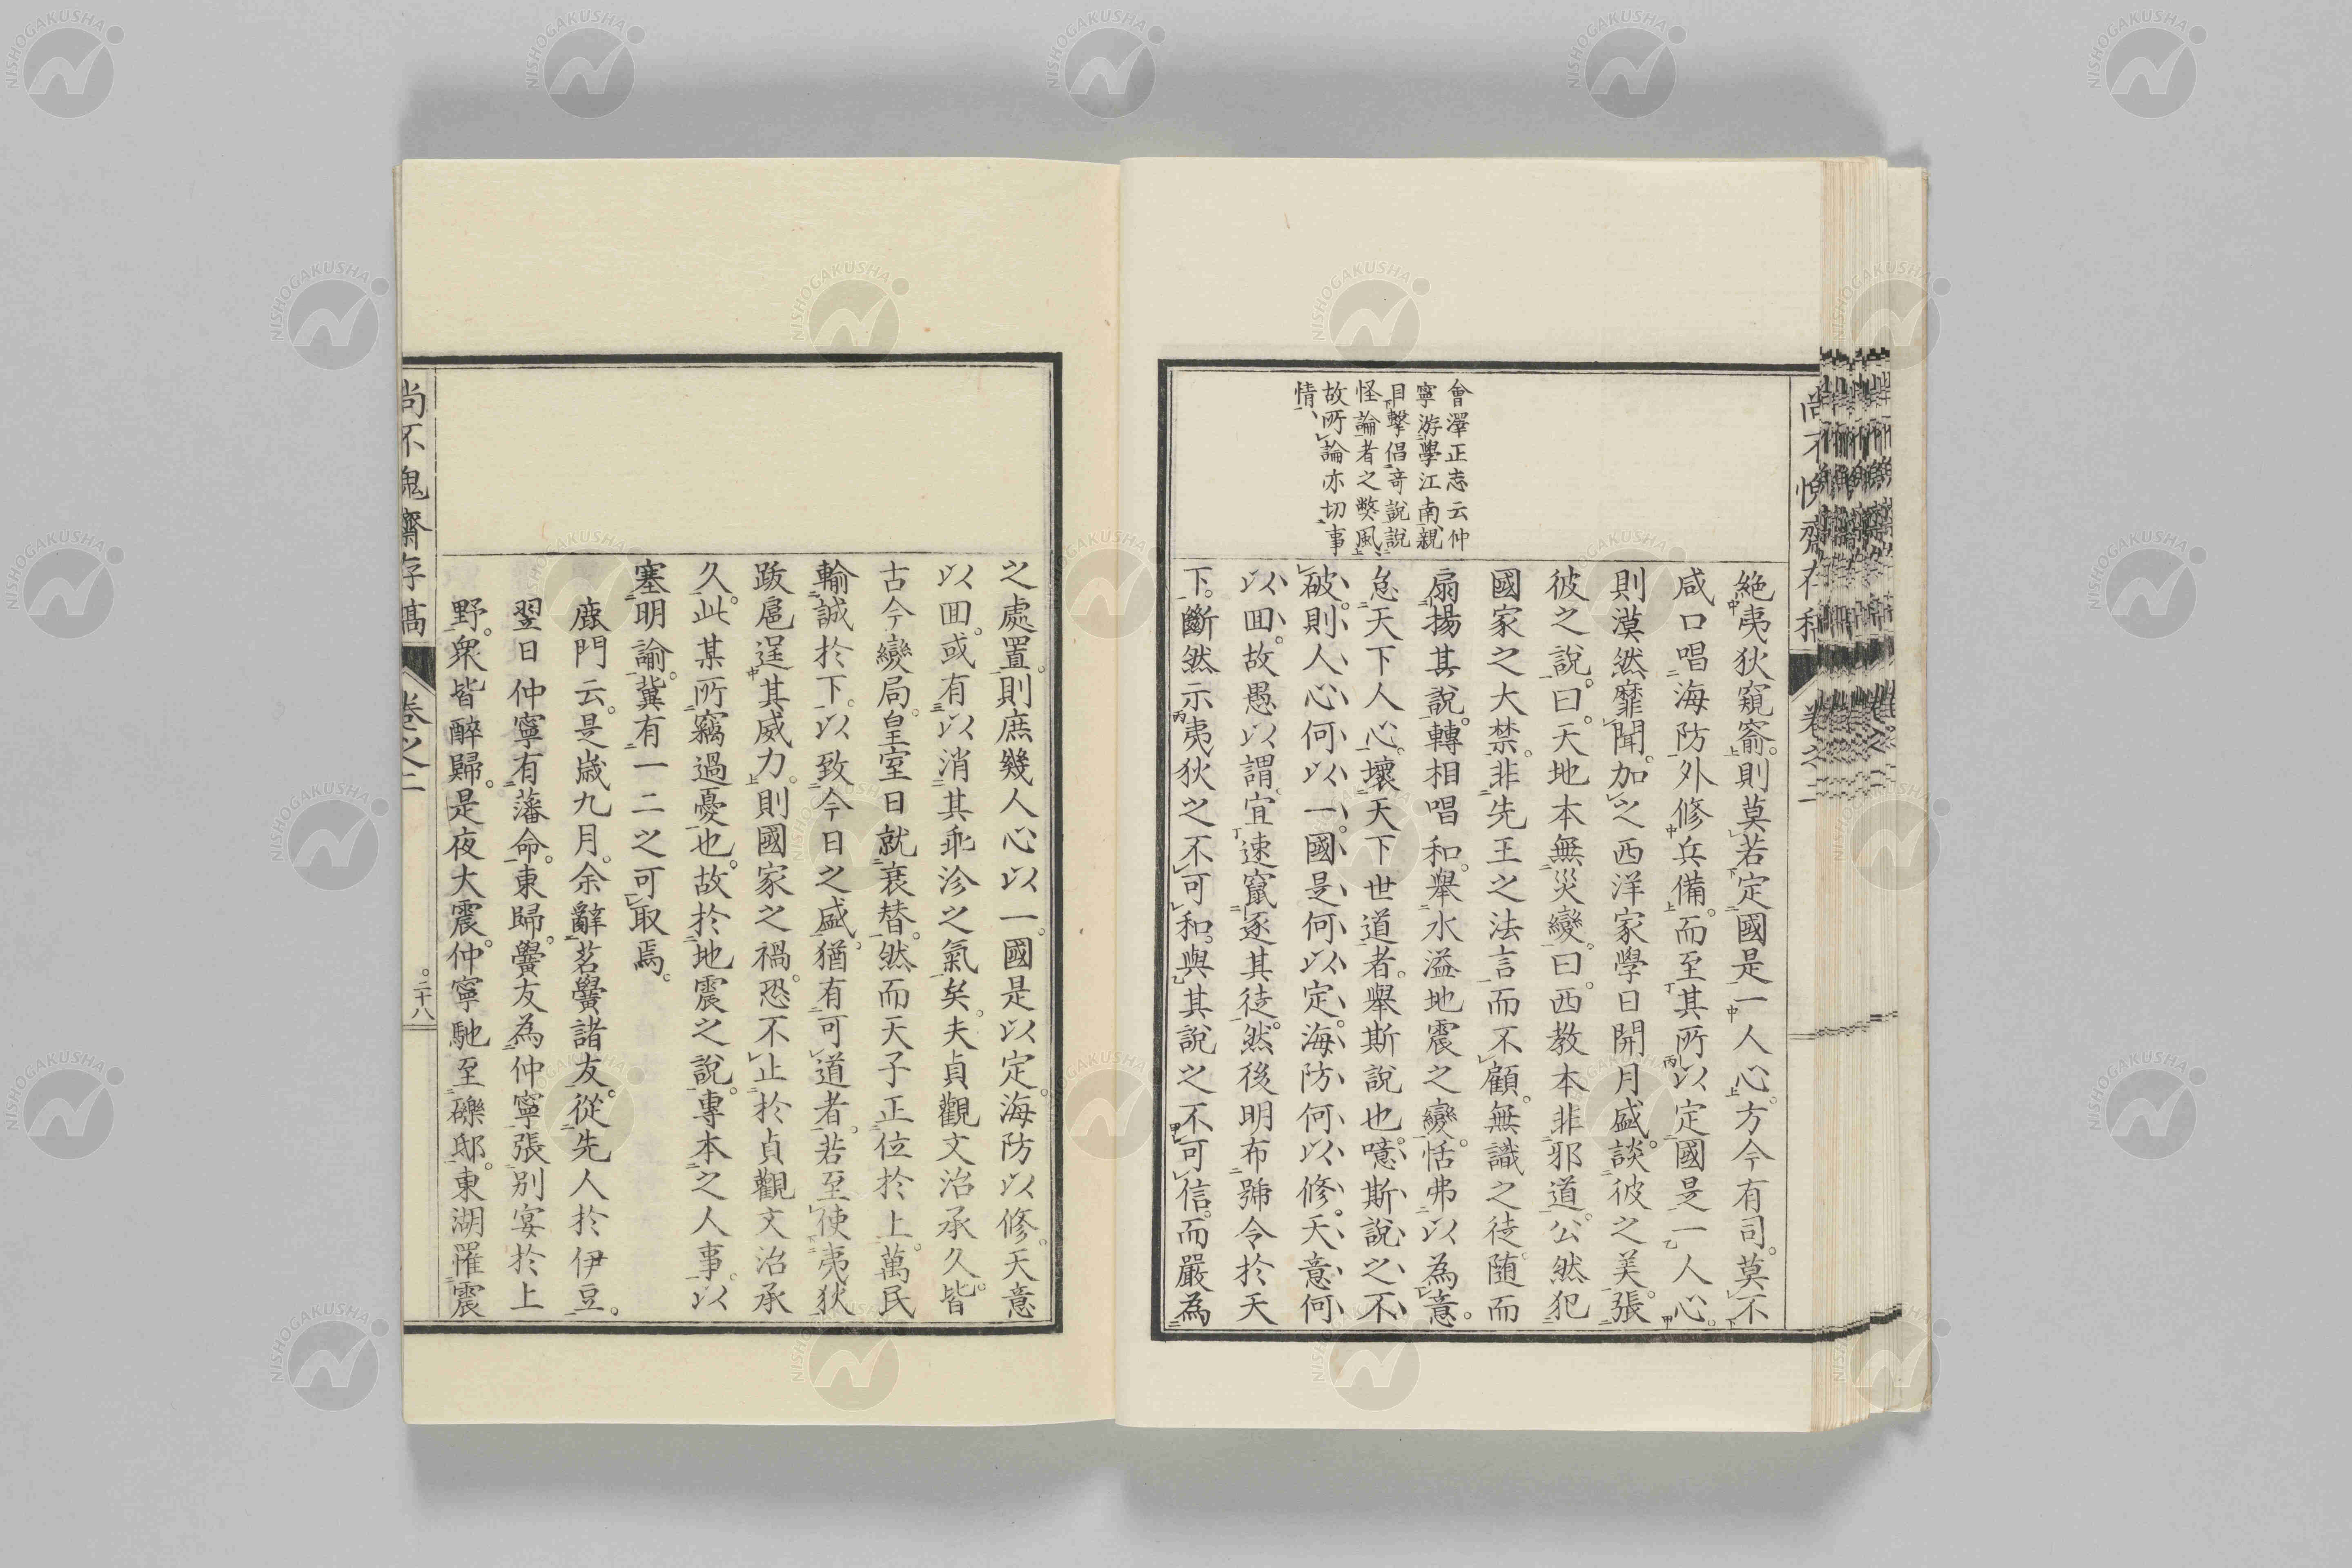 尚不愧齋存稿
卷之二
會澤正志云仲
寧游學江南親
目擊倡奇說說
怪論者之弊風
故所論亦切事
情
絶夷狄窺窬。則莫若定國是一人心。方今有司。莫不
咸口唱海防外修兵備。而至其所以定國是一人心。
則漠然靡聞。加之西洋家學日開月盛。談彼之美。張
彼之說。曰。天地本無災變。曰。西教本非邪道。公然犯
國家之大禁。非先王之法言而不顧。無識之徒。隨而
扇揚其說。轉相唱和。舉水溢地震之變。恬弗以為意。
怠天下人心。壞天下世道者。舉斯說也。噫斯說之不
破。則人心何以一。國是何以定。海防何以修。天意何
以回。故愚以謂。宜速竄逐其徒。然後明布號令於天
下。斷然示夷狄之不可和。與其說之不可信。而嚴為
之處置。則庶幾人心以一。國是以定。海防以修。天意
以回。或有以消其乖沴之氣矣。夫貞觀文治承久。皆
古今變局。皇室日就衰替。然而天子正位於上。萬民
輸誠於下。以致今日之盛。猶有可道者。若至使夷狄
跋扈逞其威力。則國家之禍。恐不止於貞觀文治承
久。此某所竊過憂也。故於地震之說。專本之人事。以
塞明諭。冀有一二之可取焉。
鹿門云。是歲九月。余辭茗黌諸友。從先人於伊豆。
翌日仲寧有藩命。東歸。黌友為仲寧張別宴於上
野。衆皆醉歸。是夜大震。仲寧馳至礫邸。東湖罹震
尚不愧齋存稿
卷之二
二十八
NISHOGAKUSHA